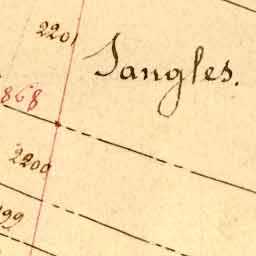 2201
Tangles.
868
2200
199